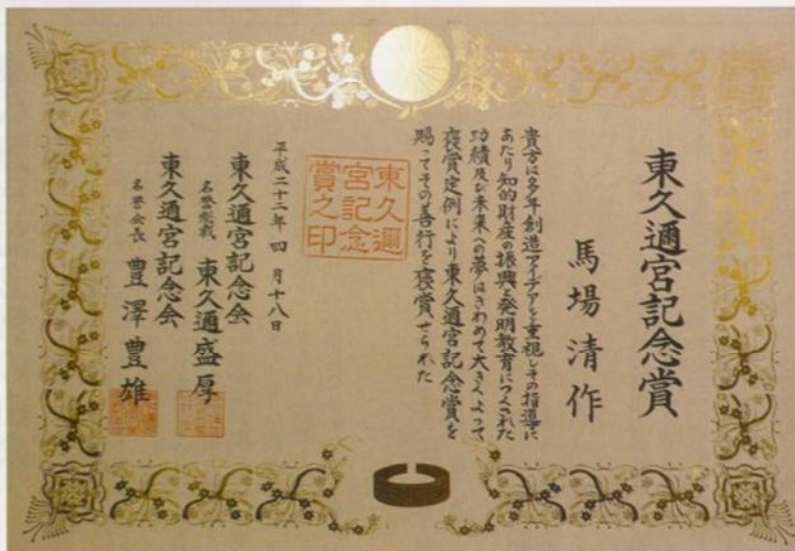 東久邇宮記念賞
馬場清作
貴方は多年創造アイデアを重視しその指導に
あたり知的財産の振興と発明教育につくされた
功績及び未来への夢はきわめて大きくよって
褒賞定例により東久邇宮記念賞を
賜ってその善行を褒賞せられた
東久邇
宮記念
賞之印
平成二十二年四月十八日
東久邇宮記念会
名誉総裁 東久邇盛厚
東久邇宮記念会
名誉会長 豊澤豊雄